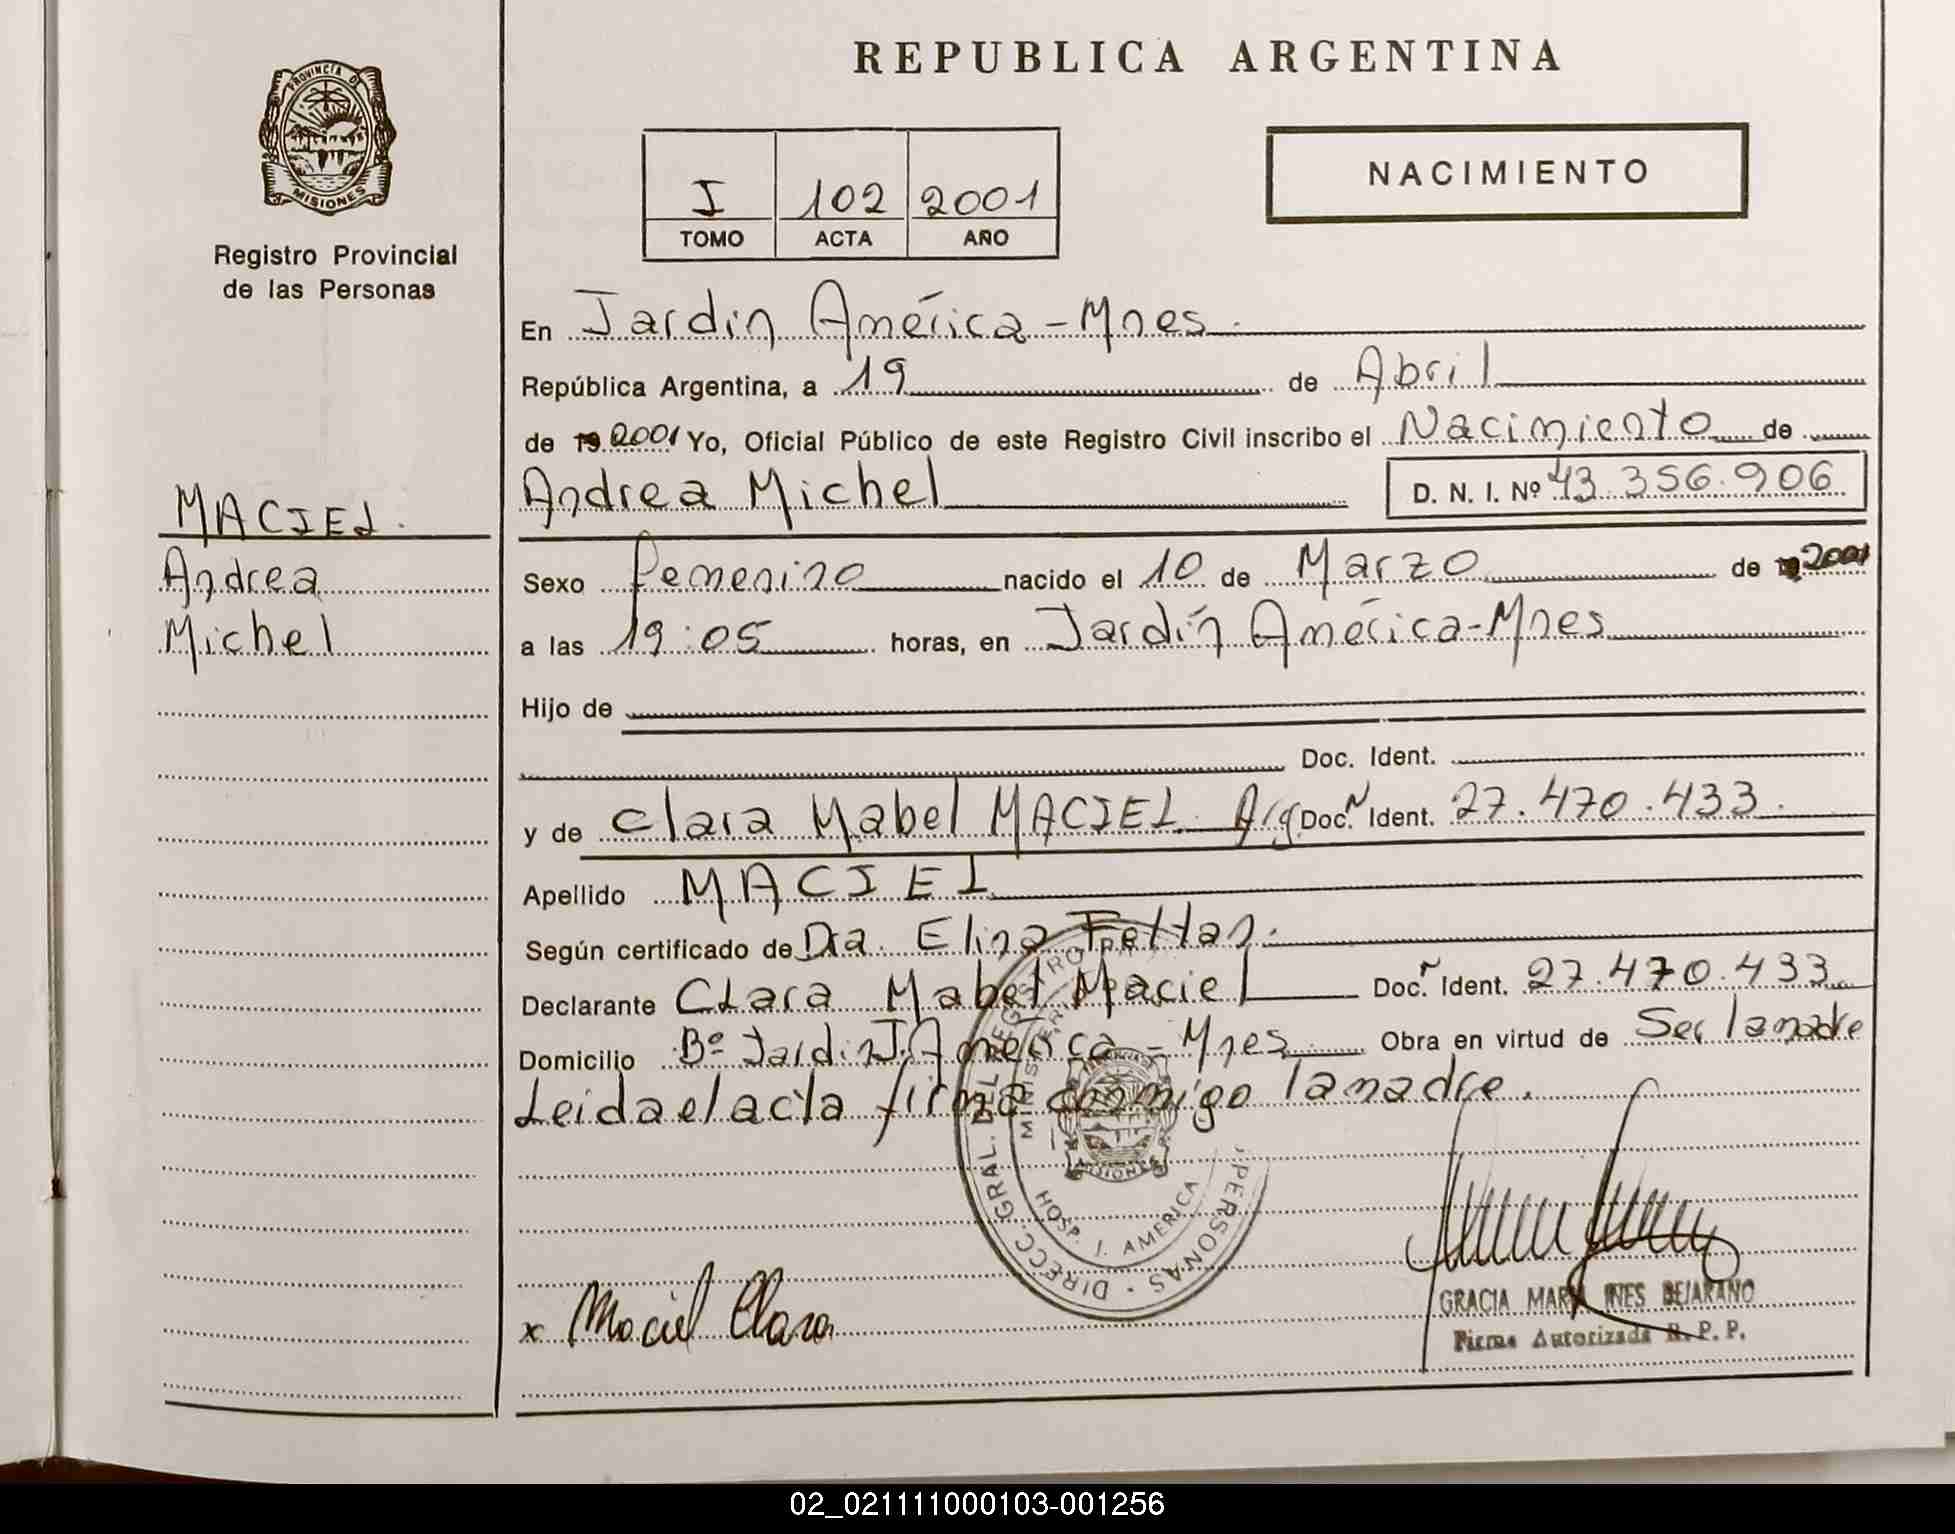 REPUBLICA ARGENTINA
PROVINCIA DE
MISIONES
Registro Provincial
de las Personas
I 102 2001
TOMO ACTA AÑO
NACIMIENTO
En Jardin América - Mnes.
República Argentina, a 19 de Abril
de 19 2001 Yo, Oficial Público de este Registro Civil inscribo el Nacimiento de
Andrea Michel D. N. I. Nº 43.356.906
MACIEL.
Andrea
Michel
Sexo femenino nacido el 10 de Marzo de 2001
a las 19:05 horas, en Jardín América - Mnes
Hijo de
Doc. Ident.
y de Clara Mabel MACIEL Arg Doc. Ident. 27.470.433.
Apellido MACIEL
Según certificado de Dra. Elina
Declarante Clara Mabel Maciel Doc. Ident. 27.470.433
Domicilio Bº Jardin J. América - Mnes Obra en virtud de Ser la madre
Leida el acta firma conmigo la madre.
DIRECC. GRAL. DEL REGISTRO PERSONAS
HOSP. J. AMERICA
MISIONES
x Maciel Clara
GRACIA MARIA INES BEJARANO
Firma Autorizada R. P. P.
02_021111000103-001256